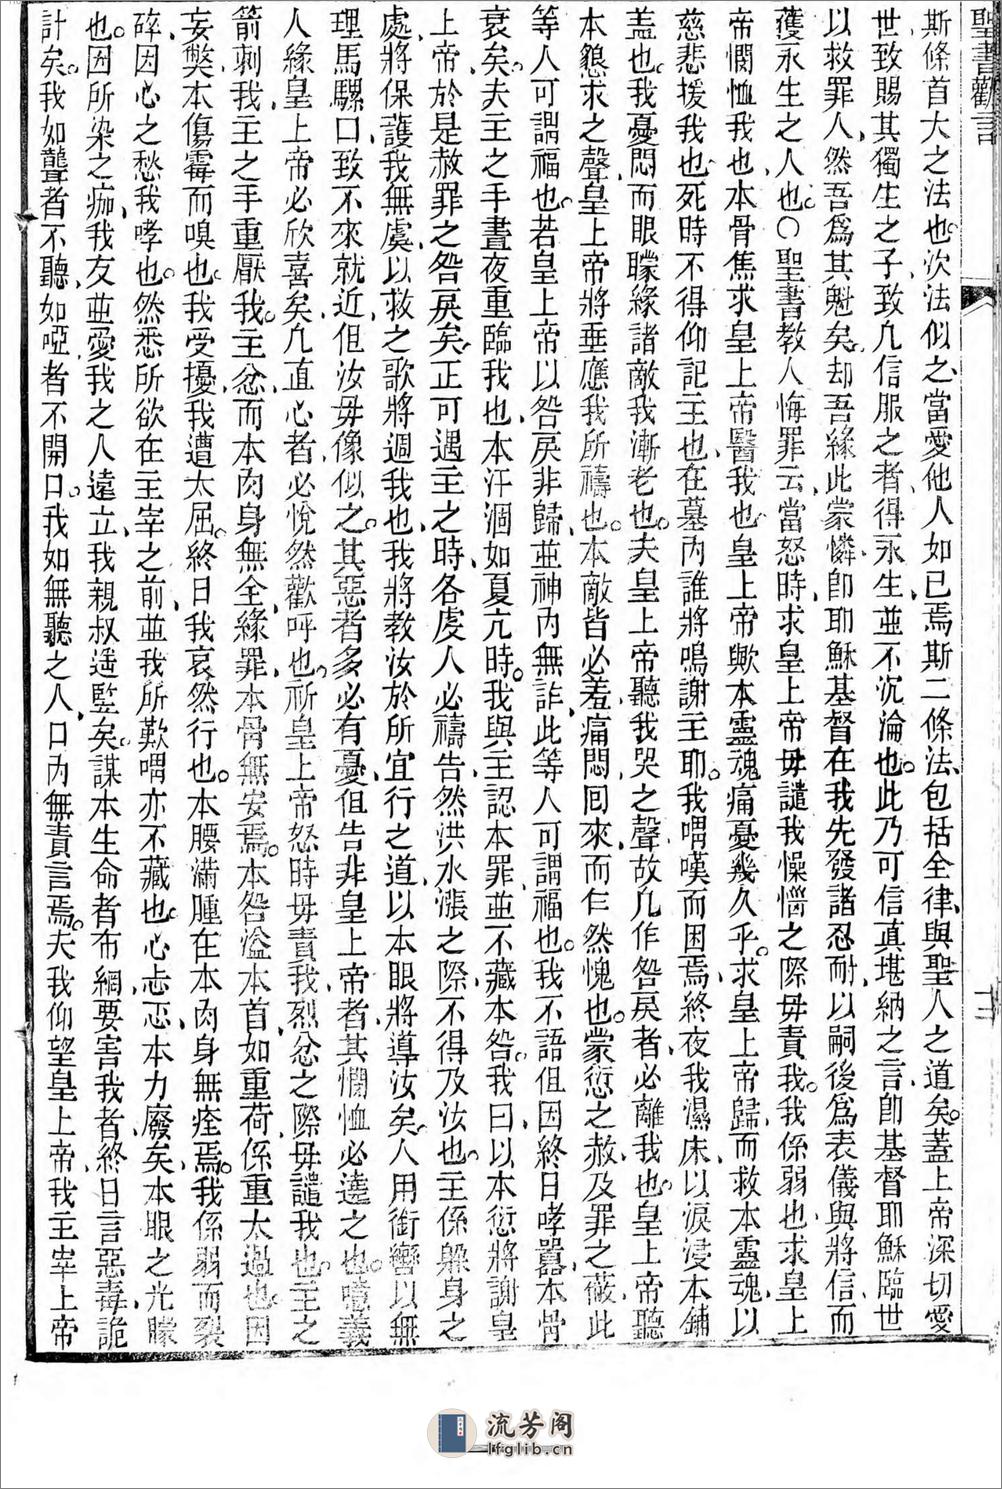 聖書勸言
斯條首大之法也次法似之當愛他人如己焉斯二條法包括全律與聖人之道矣蓋上帝深切愛
世致賜其獨生之子致凡信服之者得永生並不沉淪也此乃可信真堪納之言卽基督耶穌臨世
以救罪人然吾爲其魁矣却吾緣此蒙憐卽耶穌基督在我先發諸忍耐以嗣後爲表儀與將信而
獲永生之人也○聖書教人悔罪云當怒時求皇上帝毋譴我懆惱之際毋責我我係弱也求皇上
帝憫恤我也本骨焦求皇上帝醫我也皇上帝歟本靈魂痛憂幾久乎求皇上帝歸而救本靈魂以
慈悲援我也死時不得仰記主也在墓內誰將鳴謝主耶我喟嘆而困焉終夜我濕床以淚浸本鋪
盖也我憂悶而眼矇緣諸敵我漸老也夫皇上帝聽我哭之聲故凡作咎戾者必離我也皇上帝聽
本懇求之聲皇上帝將垂應我所禱也本敵皆必羞痛悶囘來而乍然愧也蒙愆之赦及罪之蔽此
等人可謂福也若皇上帝以咎戾非歸並神內無詐此等人可謂福也我不語但因終日哮囂本骨
衰矣夫主之手晝夜重臨我也本汗涸如夏亢時我與主認本罪並不藏本咎我曰以本愆將謝皇
上帝於是赦罪之咎戾矣正可遇主之時各虔人必禱告然洪水漲之際不得及汝也主係躲身之
處將保護我無虞以救之歌將週我也我將教汝於所宜行之道以本眼將導汝矣人用銜轡以無
理馬騾口致不來就近但汝毋像似之其惡者多必有憂但告非皇上帝者其憫恤必遶之也噫義
人緣皇上帝必欣喜矣凡直心者必悅然歡呼也祈皇上帝怒時毋責我烈忿之際毋譴我也主之
箭刺我主之手重厭我主忿而本肉身無全緣罪本骨無安焉本咎溢本首如重荷係重太過也因
妄獘本傷霉而嗅也我受擾我遭太屈終日我哀然行也本腰滿腫在本肉身無痊焉我係弱而裂
碎因心之愁我哮也然悉所欲在主宰之前並我所歎喟亦不藏也心忐忑本力廢矣本眼之光矇
也因所染之痂我友並愛我之人遠立我親叔遙監矣謀本生命者布網要害我者終日言惡毒詭
計矣我如聾者不聽如啞者不開口我如無聽之人口內無責言焉夫我仰望皇上帝我主宰上帝
流芳阁
lfglib.cn